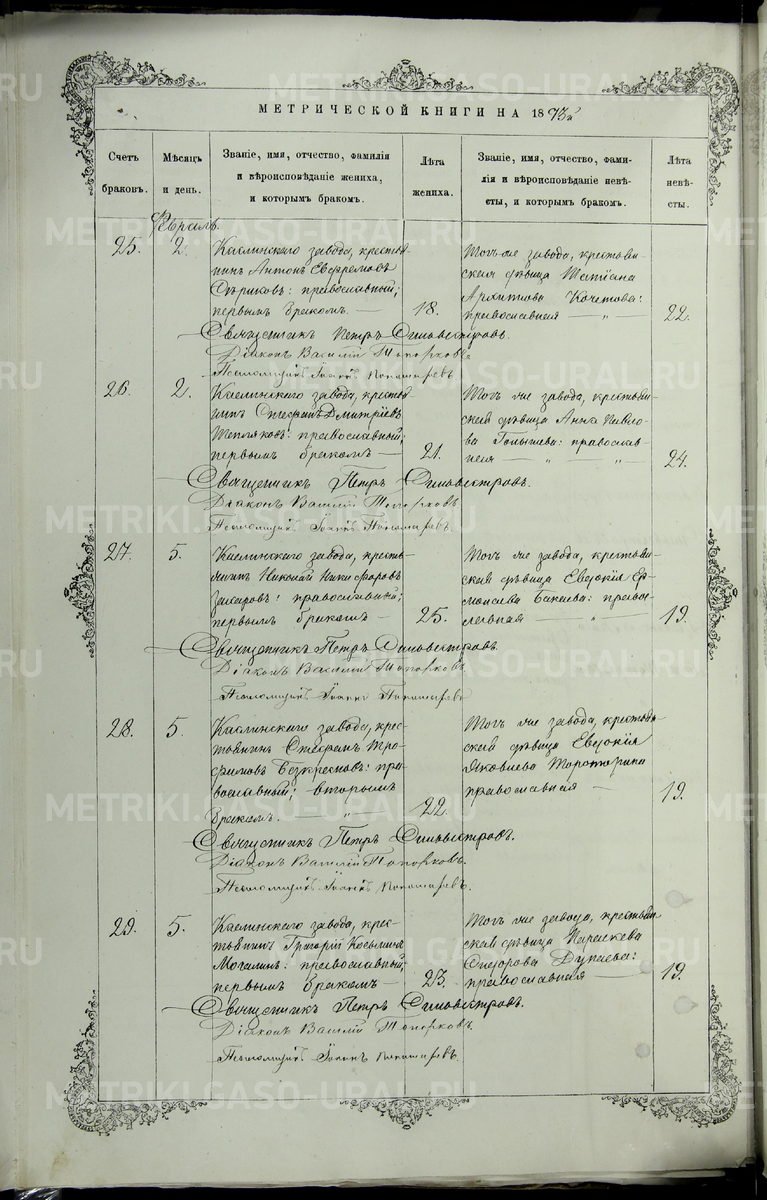 МЕТРИЧЕСКОЙ КНИГИ НА 1873й
Счетъ браковъ.
Мѣсяцъ и день.
Званіе, имя, отчество, фамилія
и вѣроисповѣданіе жениха,
и которымъ бракомъ.
Лѣта жениха.
Званіе, имя, отчество, фами-
лія и вѣроисповѣданіе невѣ-
сты, и которымъ бракомъ.
Лѣта невѣ-
сты.
Февраль.
25. 2. Каслинскаго завода, кресть-
янинъ Антонъ Евфремовъ
православный;
первымъ бракомъ — 18.
Тогоже завода, крестьян-
ская дѣвица Татіана
Архипова Кочетова:
православная — „ — 22.
Священникъ Петръ Сильвестровъ.
Діаконъ Василій Топорковъ
Псаломщикъ Іоаннъ Пономаревъ
26. 2. Каслинскаго завода, кресть-
янинъ Стефанъ Дмитріевъ
Тепляковъ: православный;
первымъ бракомъ — 21.
Того же завода, крестьян-
ская дѣвица Анна Павло-
ва Голышева: православ-
ная — „ — „ — 24.
Священникъ Петръ Сильвестровъ.
Діаконъ Василій Топорковъ
Псаломщикъ Іоаннъ Пономаревъ.
27. 5. Каслинскаго завода, кресть-
янинъ Николай Никифоровъ
Захаровъ: православный;
первымъ бракомъ — 25.
Того же завода, крестьян-
ская дѣвица Евдокія Ер-
молаева Бакаева: право-
славная — „ — 19.
Священникъ Петръ Сильвестровъ.
Діаконъ Василій Топорковъ
Псаломщикъ Іоаннъ Пономаревъ
28. 5. Каслинскаго завода, крес-
тьянинъ Стефанъ Тро-
фимовъ Безкресновъ: пра-
вославный; вторымъ
бракомъ. — „ — 22.
Того же завода, крестьян-
ская дѣвица Евдокія
Яковлева
православная — 19.
Священникъ Петръ Сильвестровъ.
Діаконъ Василій Топорковъ.
Псаломщикъ Іоаннъ Пономаревъ.
29. 5. Каслинскаго завода, крес-
тьянинъ Григорій Косьминъ
Могалинъ: православный;
первымъ бракомъ — 23.
Того же завода, крестьян
ская дѣвица Параскева
Сидорова Дунаева:
православная — 19.
Священникъ Петръ Сильвестровъ.
Діаконъ Василій Топорковъ.
Псаломщикъ Іоаннъ Пономаревъ.
METRIKI.GASO-URAL.RU